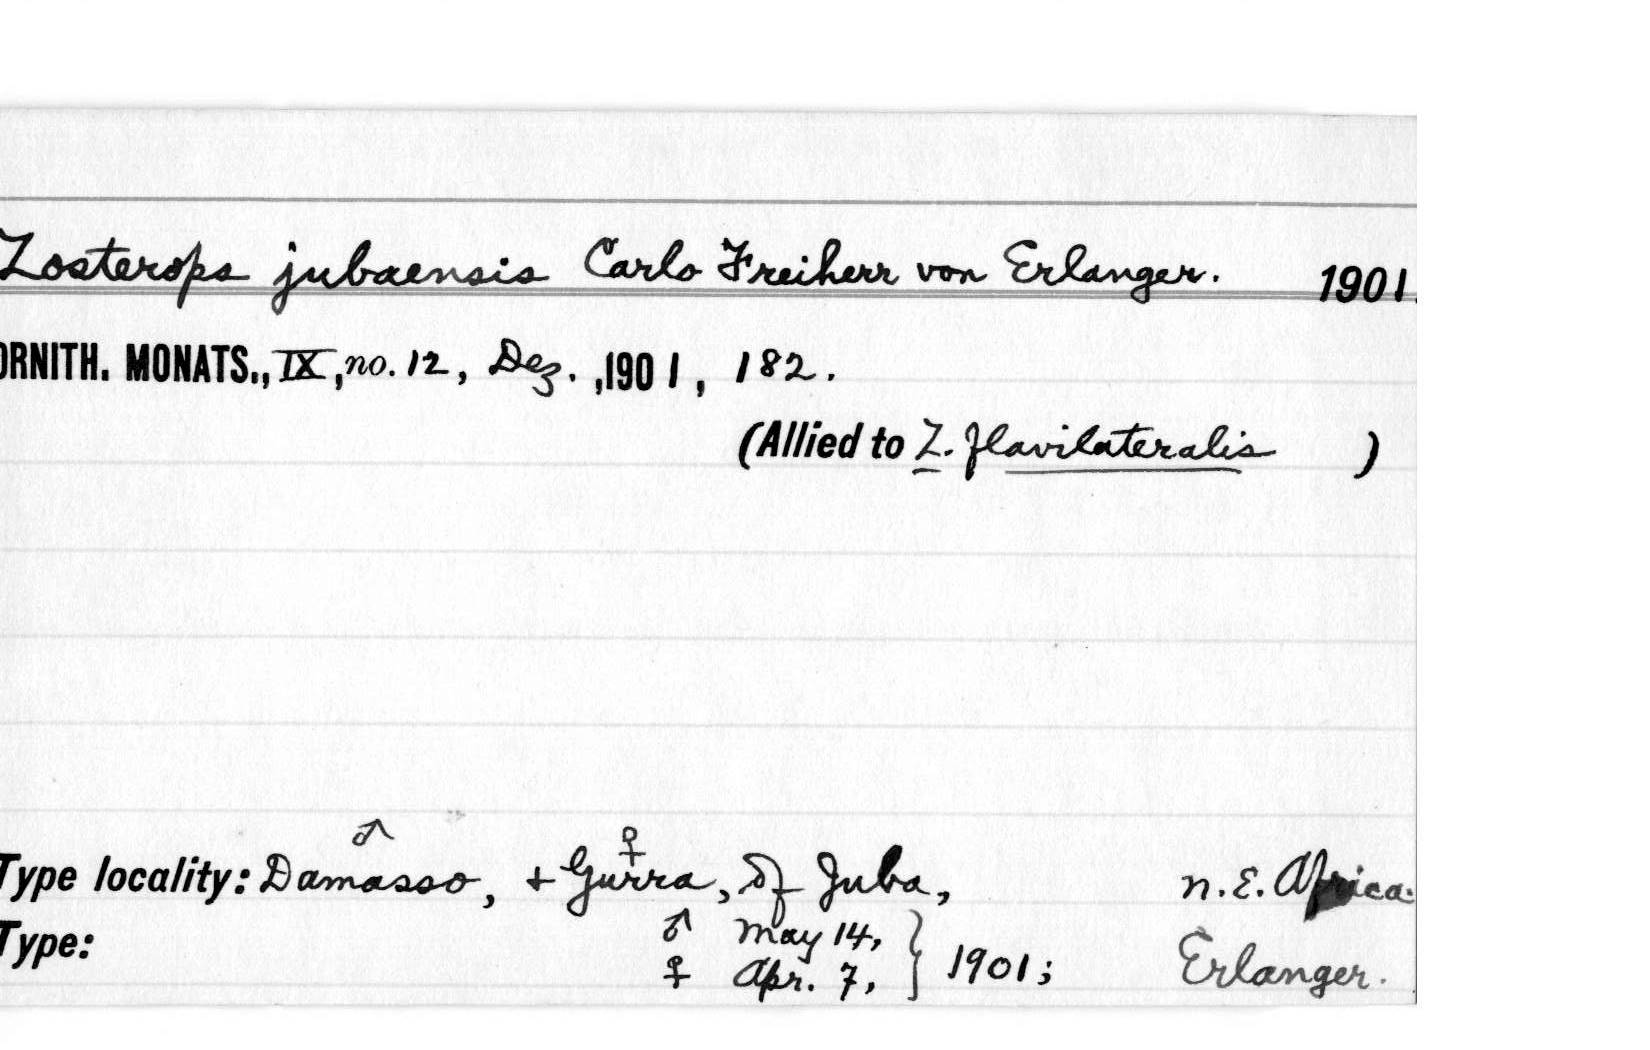 Zosterops jubaensis Carlo Freiherr von Erlanger. 1901.
ORNITH. MONATS., IX, no. 12, Dez., 1901, 182.
(Allied to Z. flavilateralis )
♂ ♀
Type locality: Damasso, + Gurra, Juba, n.E. Africa.
Type: ♂ May 14,
♀ Apr. 7, } 1901; Erlanger.